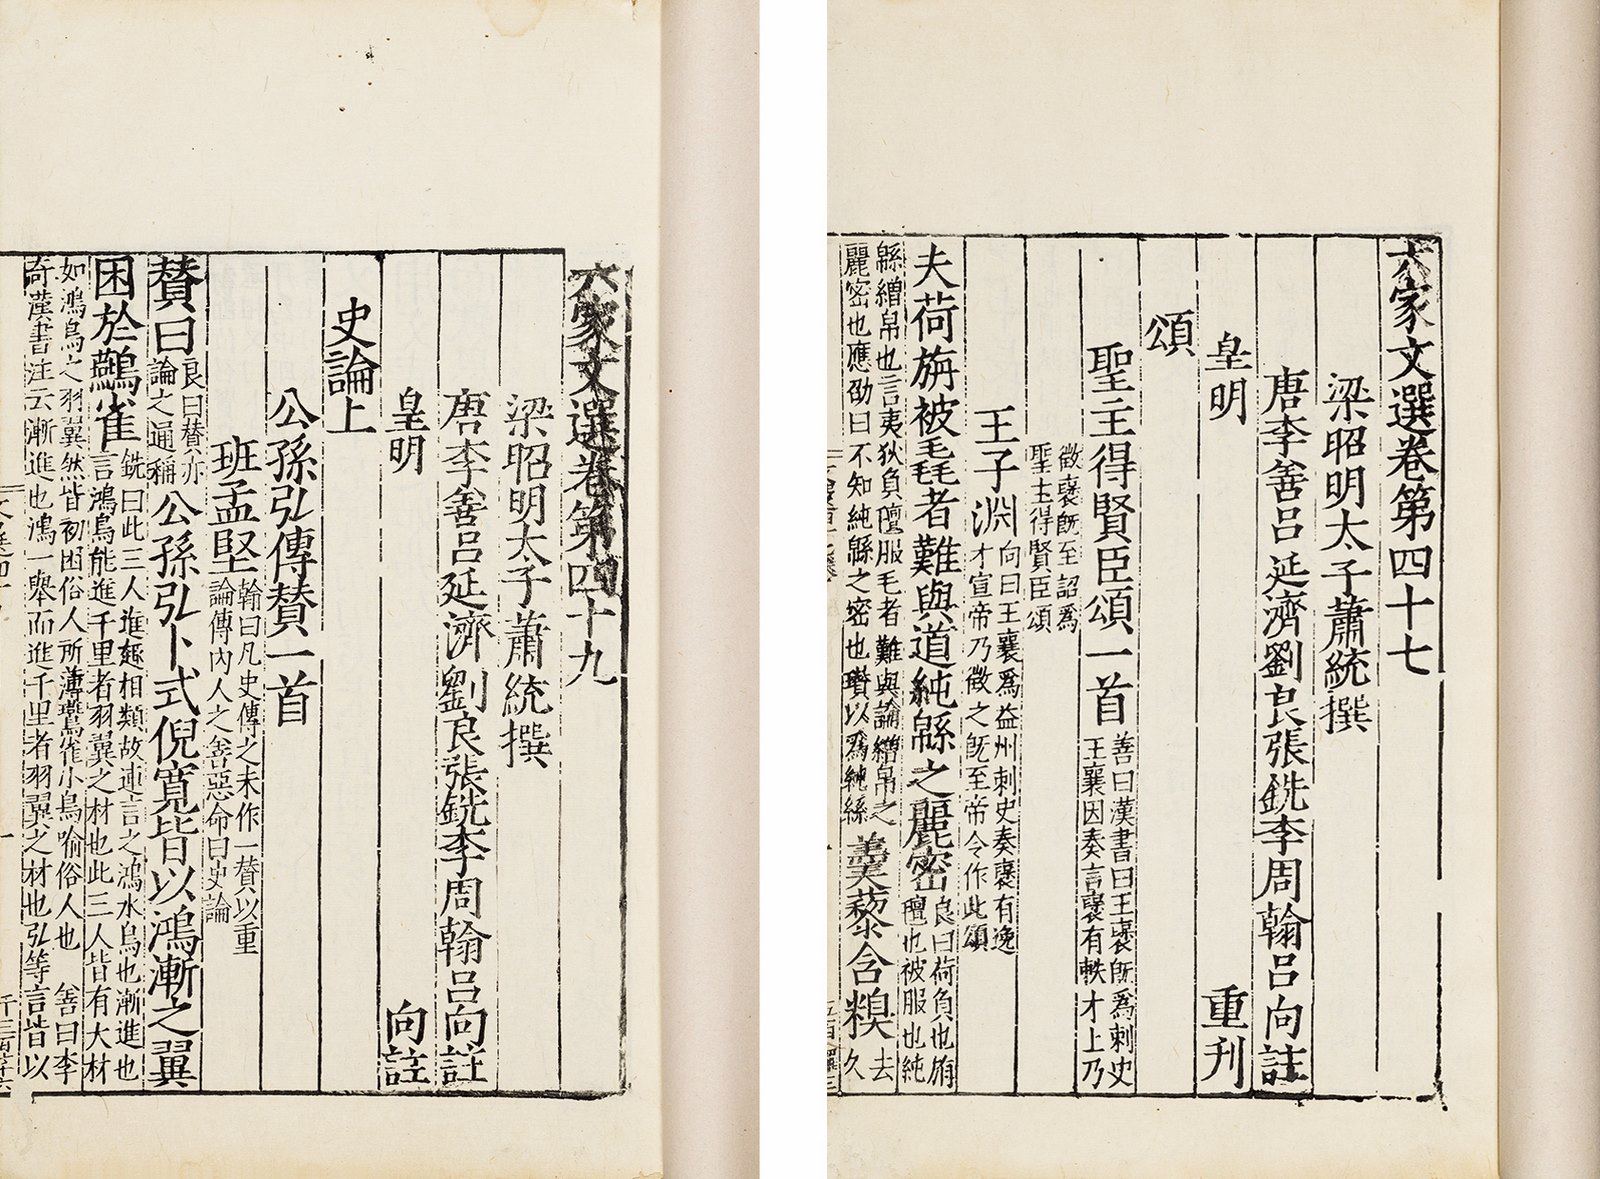 六家文選卷第四十七
梁昭明太子蕭統撰
唐李善呂延濟劉良張銑李周翰呂向註
皇明 重刊
頌
聖主得賢臣頌一首 善曰漢書曰王襃旣爲刺史
王襄因奏言襃有軼才上乃
徵襃旣至詔爲
聖主得賢臣頌
王子淵 向曰王襄爲益州刺史奏襃有逸
才宣帝乃徵之旣至帝令作此頌
夫荷旃被毳者難與道純緜之麗密 良曰荷負也旃
氊也被服也純
緜繒帛也言夷狄負氊服毛者難與論繒帛之
麗密也應劭曰不知純緜之密也瓚以爲純絲
羹藜含糗 去
久
六家文選卷第四十九
梁昭明太子蕭統撰
唐李善呂延濟劉良張銑李周翰呂向註
皇明 向註
史論上
公孫弘傳贊一首
班孟堅 翰曰凡史傳之末作一贊以重
論傳內人之善惡命曰史論
贊曰 良曰贊亦
論之通稱
公孫弘卜式倪寬皆以鴻漸之翼
困於鷰雀 銑曰此三人進趍相類故連言之鴻水鳥也漸進也
言鴻鳥能進千里者羽翼之材也此三人皆有大材
如鴻鳥之羽翼然皆初困俗人所薄鷰雀小鳥喻俗人也 善曰李
奇漢書注云漸進也鴻一舉而進千里者羽翼之材也弘等言皆以